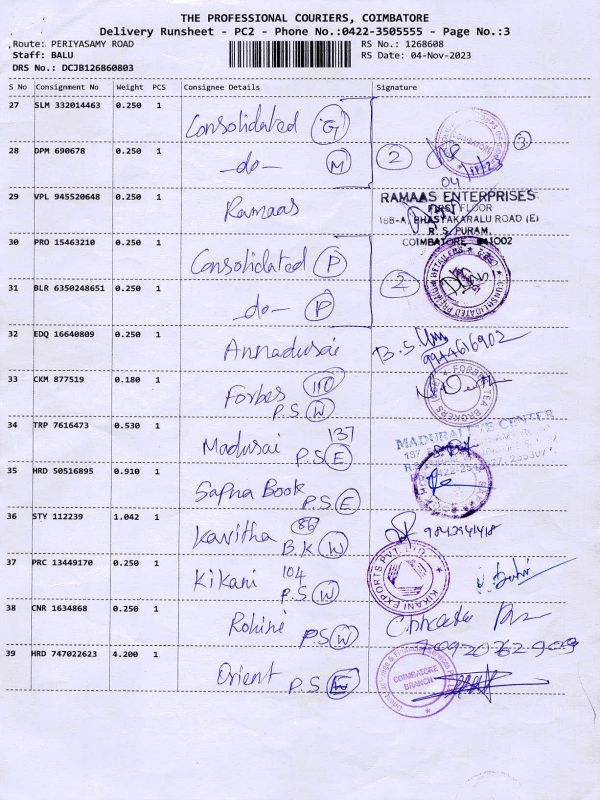 THE PROFESSIONAL COURIERS, COIMBATORE
Delivery Runsheet - PC2 - Phone No.:0422-3505555 - Page No.:3
Route: PERIYASAMY ROAD RS No.: 1268608
Staff: BALU RS Date: 04-Nov-2023
DRS No.: DCJB126860803
S No Consignment No Weight PCS Consignee Details Signature
27 SLM 332014463 0.250 1 Consolidated G
28 DPM 690678 0.250 1 -do- M 2 3
COIMBATORE
04/11/23
29 VPL 945520648 0.250 1 Ramaas
RAMAAS ENTERPRISES
FIRST FLOOR
188-A, BHASYAKARALU ROAD (E)
R. S. PURAM,
COIMBATORE 641002
30 PRO 15463210 0.250 1 Consolidated P
31 BLR 6350248651 0.250 1 -do- P 2
CONSOLIDATED PREMIUM RETAILERS
32 EDQ 16640809 0.250 1 Annadurai
9944616902
33 CKM 877519 0.180 1 Forbes
P.S W
FORBES TEA BROKERS
34 TRP 7616473 0.530 1 Madurai 137
P.S E
MADURAI EYE CENTER
35 HRD 50516895 0.910 1 Sapna Book P.S E
36 STY 112239 1.042 1 Kavitha 86
B.K W
9842941418
37 PRC 13449170 0.250 1 Kikani 104
P.S W
KIKANI EXPORTS PVT. LTD.
38 CNR 1634868 0.250 1 Rohini P.S W
39 HRD 747022623 4.200 1 Orient P.S
COIMBATORE
BRANCH